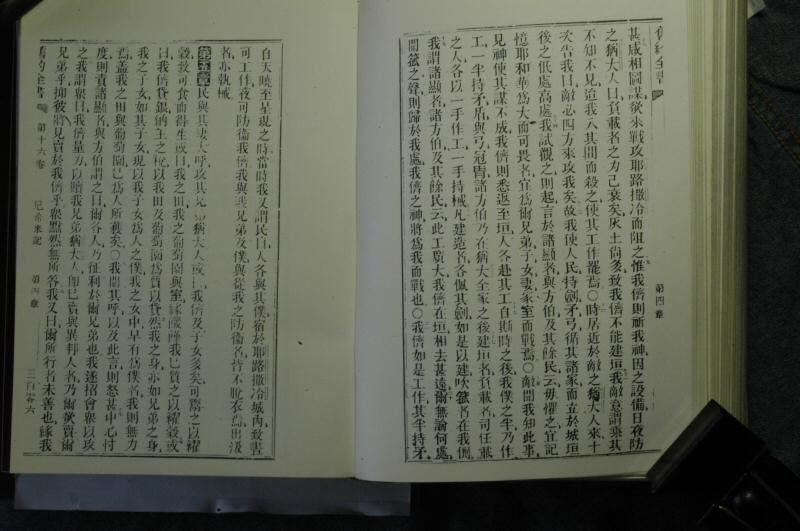 舊約全書
第四章
甚咸相圖謀欲來戰攻耶路撒冷而阻之惟我儕則祈我神因之設備日夜防
之猶大人曰負載者之力己衰矣灰土尚多致我儕不能建垣我敵意謂乘其
不知不見迨我入其間而殺之使其工作罷焉〇時居近於敵之猶大人來十
次告我曰敵必四方來攻我矣故我使人民持劍矛弓循其諸家而立於城垣
後之低處高處我試觀之則起言於諸顯者與方伯及其餘民云毋懼之宜記
憶耶和華爲大而可畏者宜爲爾兄弟子女妻家室而戰焉〇敵聞我知此事
見神使其謀不成我儕則悉返至垣人各赴其工自斯時之後我僕之半乃作
工一半持矛盾與弓冠冑諸方伯乃在猶大全家之後建垣者負載者司任載
之人各以一手作工一手持械凡建造者各佩其劍如是以建吹箛者在我側
我謂諸顯者方伯及其餘民云此工廣大我儕在垣相去甚遠爾無論何處
聞箛之聲則歸於我處我儕之神將爲我而戰也〇我儕如是工作其半持矛
自天曉至星現之時當時我又謂民曰人各與其僕宿於耶路撒冷城內致晝
可工作夜可防衞我儕我與我兄弟及僕與從我之防衞者皆不脫衣爲出汲
者亦執械
第五章民與其妻大呼攻其兄弟猶大人或曰我儕及子女多矣可爲之以糴
穀致可食而得生或曰我之田我之葡萄園與室緣饑餓我已質之以糴穀或
曰我儕貸銀納王之稅以我田及葡萄園爲質以貸然我之身亦如兄弟之身
我之子女如其子女現以我子女爲人之僕我之女中早有爲僕者我則無力
焉蓋我之田與葡萄園已爲人所獲矣〇我聞其呼以及此言則恚甚中心忖
度則責諸顯者與方伯謂之曰爾各人乃征利於爾兄弟也我遂招會衆以攻
之我謂衆曰我儕量力以贖我兄弟猶大人即已賣與異邦人者乃爾欲賣爾
兄弟乎抑彼將見賣於我儕乎衆默然無所答我又曰爾所行者未善也緣我
舊約全書 第十六卷 尼希米記 第四章 三百零六